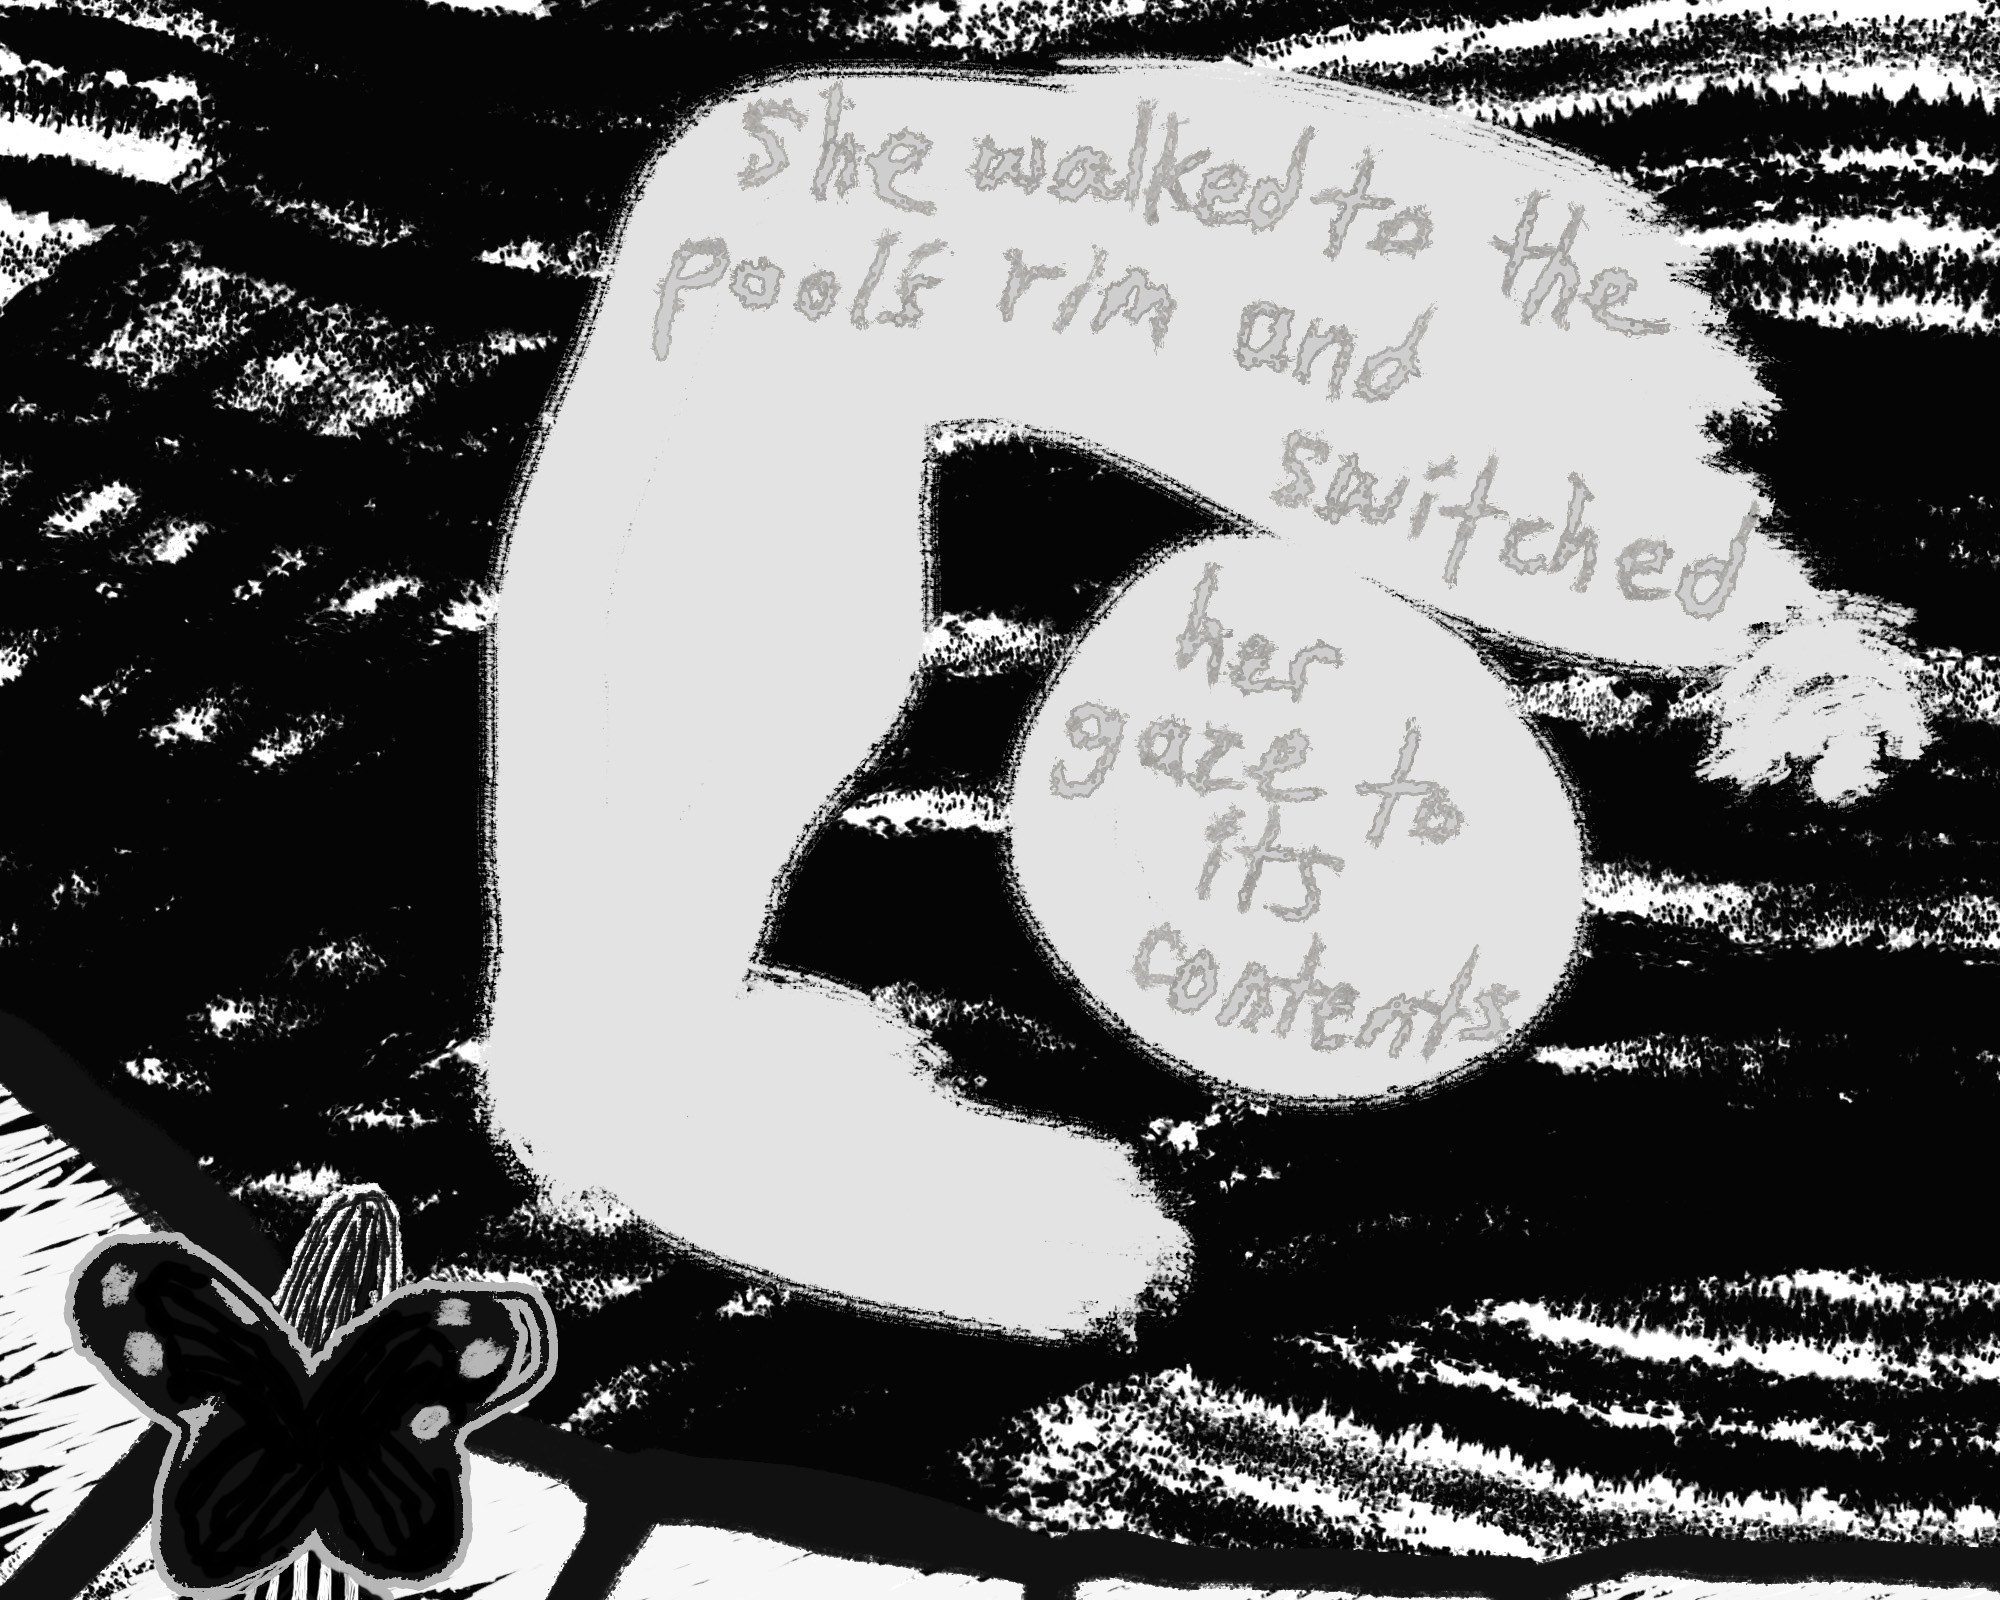 She walked to the
pools rim and
switched
her
gaze to
its
contents